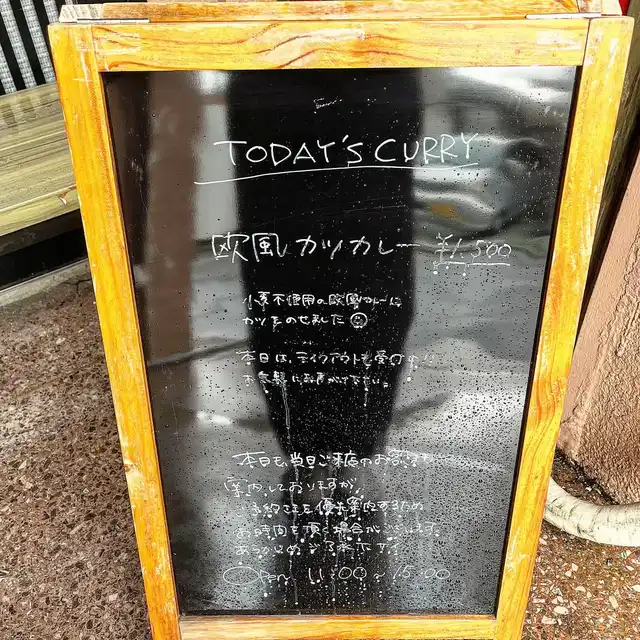 TODAY'S CURRY
欧風カツカレー ¥1,500
小麦不使用の欧風カレーに
カツをのせました
本日は、テイクアウトも受付
お気軽にお声がけ下さい。
本日も当日ご来店のお客様も
案内しておりますが、
ご予約さまを優先案内するため
お時間を頂く場合がございます。
あらかじめご了承下さい
Open 11:00~15:00